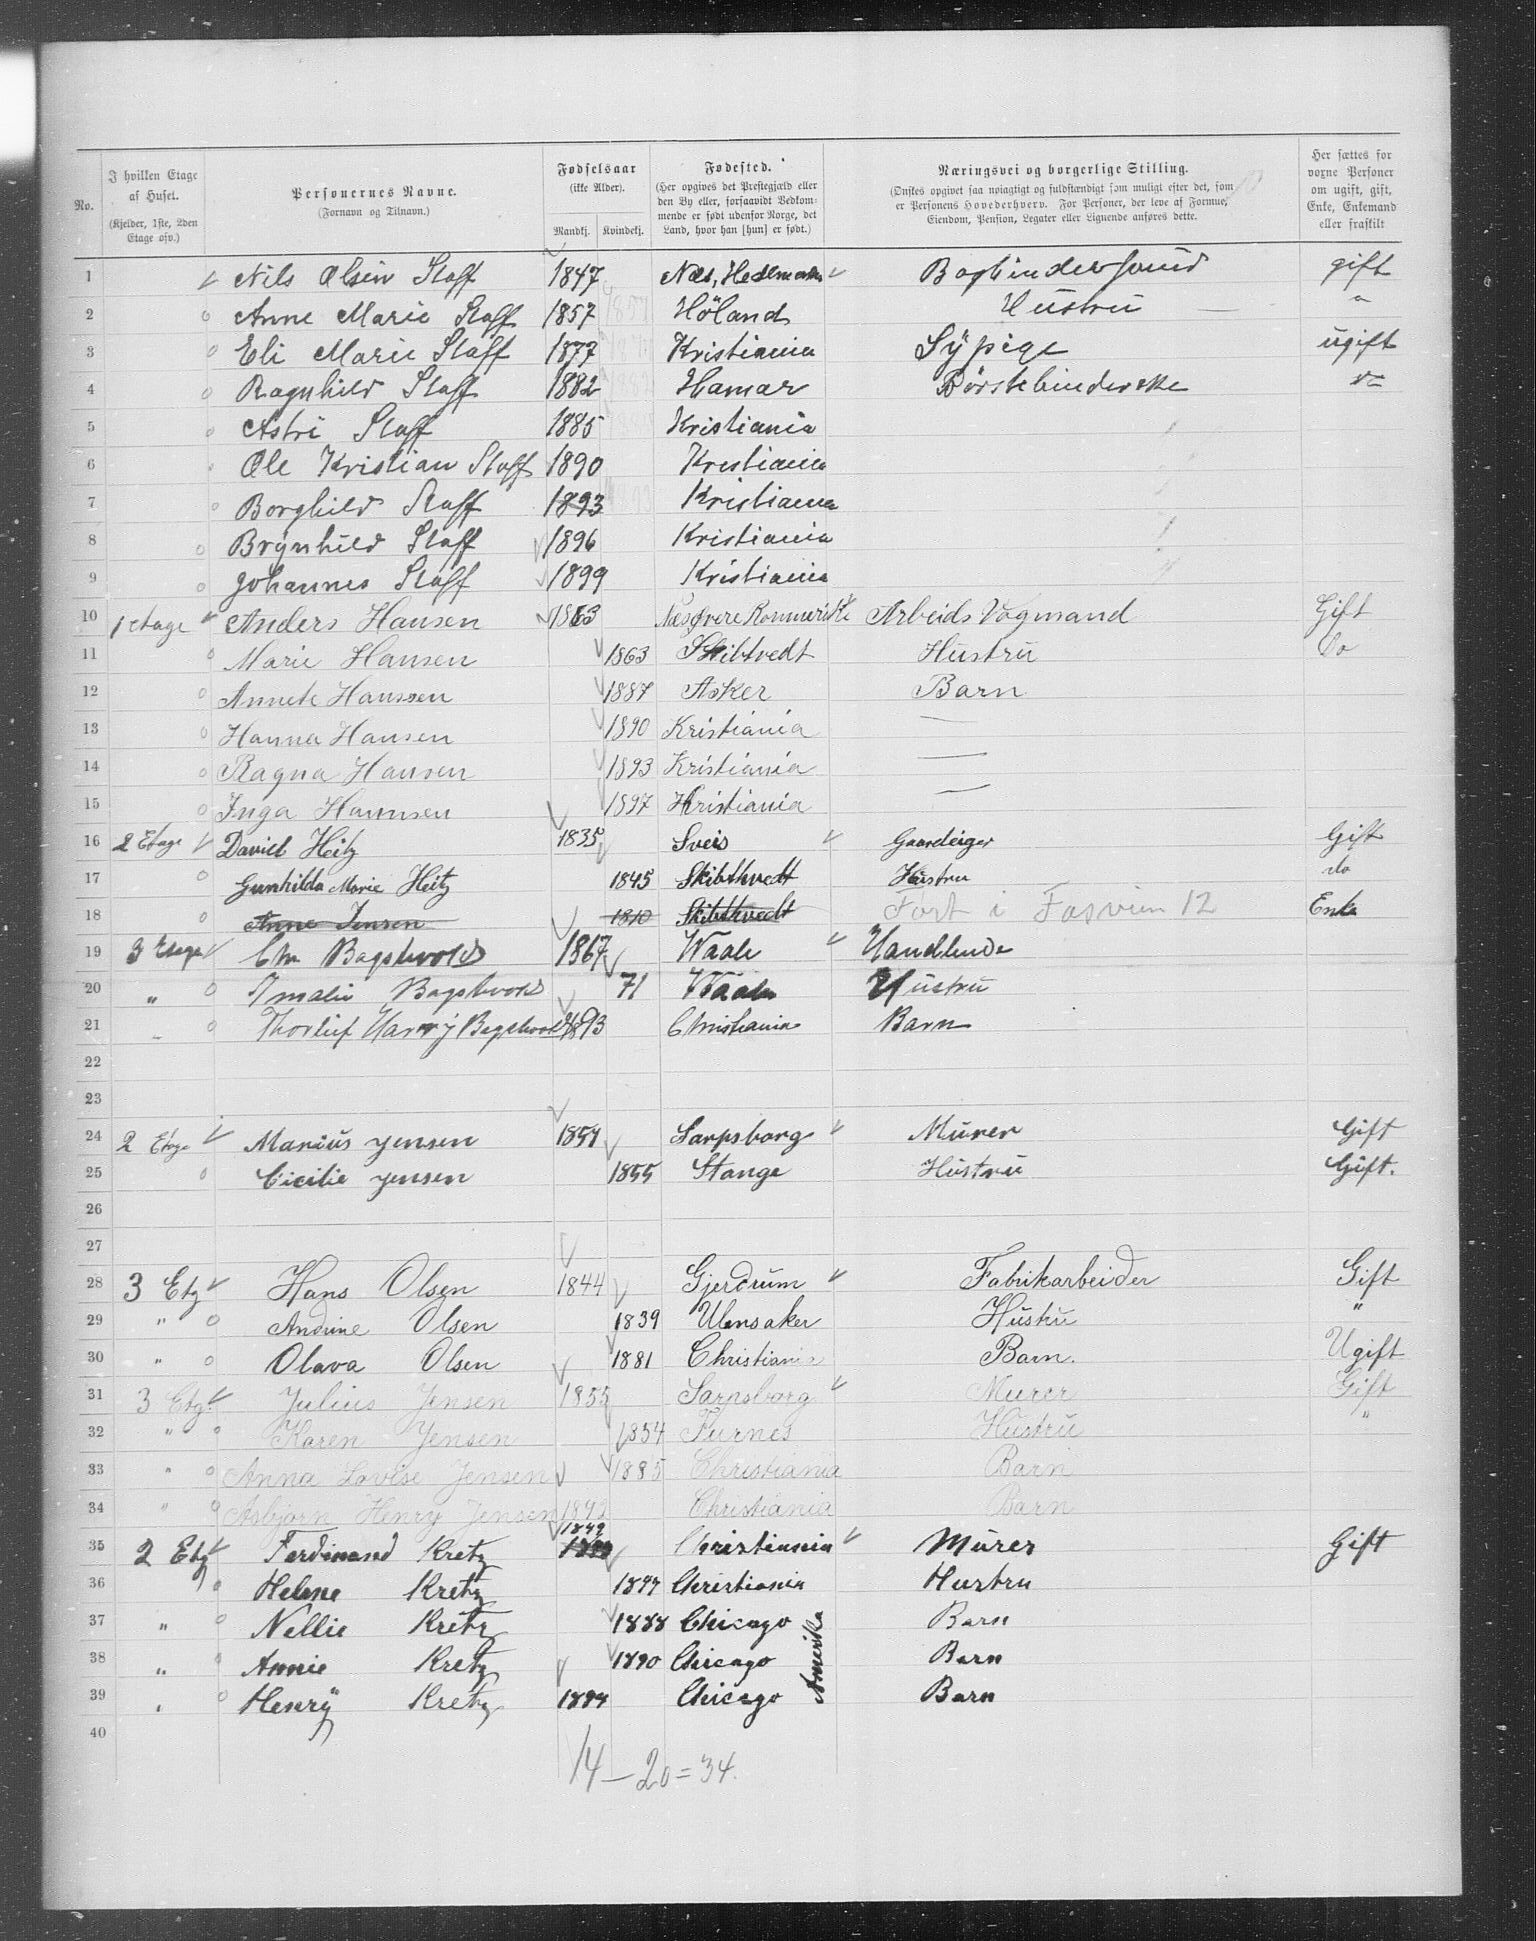 No.
I hvilken Etage af Huset. (Kjelder, 1ste, 2den Etage osv.)
Personernes Navne. (Fornavn og Tilnavn.)
Fødselsaar (ikke Alder). Mandkj. Kvindekj.
Fødested. (Her opgives det Prestegjæld eller den By eller, forsaavidt Vedkommende er født udenfor Norge, det Land, hvor han [hun] er født.)
Næringsvei og borgerlige Stilling. (Ønskes opgivet saa nøiagtigt og fuldstændigt som muligt efter det, som er Personens Hovederhverv. For Personer, der leve af Formue, Eiendom, Pension, Legater eller Lignende anføres dette.)
Her sættes for voxne Personer om ugift, gift, Enke, Enkemand eller fraskilt
1 Nils Olsen Staff 1847 Næs, Hedemarken Bogbindersvend gift
2 Anne Marie Staff 1857 Höland Hustru "
3 Eli Marie Staff 1877 Kristiania Sypige ugift
4 Ragnhild Staff 1882 Hamar Börstebinderske do
5 Astri Staff 1885 Kristiania
6 Ole Kristian Staff 1890 Kristiania
7 Borghild Staff 1893 Kristiania
8 Brynhild Staff 1896 Kristiania
9 Johannes Staff 1899 Kristiania
10 1 etage Anders Hansen 1863 Næs Øvre Romerike Arbeids Vogmand Gift
11 Marie Hansen 1863 Skibtvedt Hustru Do
12 Annete Hanssen 1887 Asker Barn
13 Hanna Hansen 1890 Kristiania —
14 Ragna Hansen 1893 Kristiania —
15 Inga Hannsen 1897 Kristiania —
16 2 Etage David Heitz 1835 Sveis Gaardeiger Gift
17 Gunhilda Marie Heitz 1845 Skibthvedt Hustru do
18 Anne Jensen 1810 Skibthvedt Fort i 12 Enke
19 3 Etage Chr Bagstevold 1867 Waale Handlende
20 " Amalie Bagstevold 71 Waale Hustru
21 " Thorleif Harry Bagstevold 1893 Christiania Barn
22
23
24 2 Etage Marius Jensen 1857 Sarpsborg Murer Gift
25 Cicilie Jensen 1855 Stange Hustru Gift.
26
27
28 3 Etg Hans Olsen 1844 Gjerdrum Fabrikarbeider Gift
29 " Andrine Olsen 1839 Ulensaker Hustru "
30 " Olava Olsen 1881 Christiania Barn. Ugift
31 3 Etg. Julius Jensen 1855 Sarpsborg Murer Gift
32 " Karen Jensen 1854 Furnes Hustru "
33 " Anna Lovise Jensen 1885 Christiania Barn
34 " Asbjørn Henry Jensen 1892 Christiania Barn
1849
35 2 Etg Ferdinand Kretz Christiania Murer Gift
36 " Helene Kretz Christiania Hustru
37 " Nellie Kretz 1888 Chicago Barn
38 " Annie Kretz 1890 Chicago Amerika Barn
39 " Henry Kretz 1894 Chicago Barn
40
14 — 20 = 34.